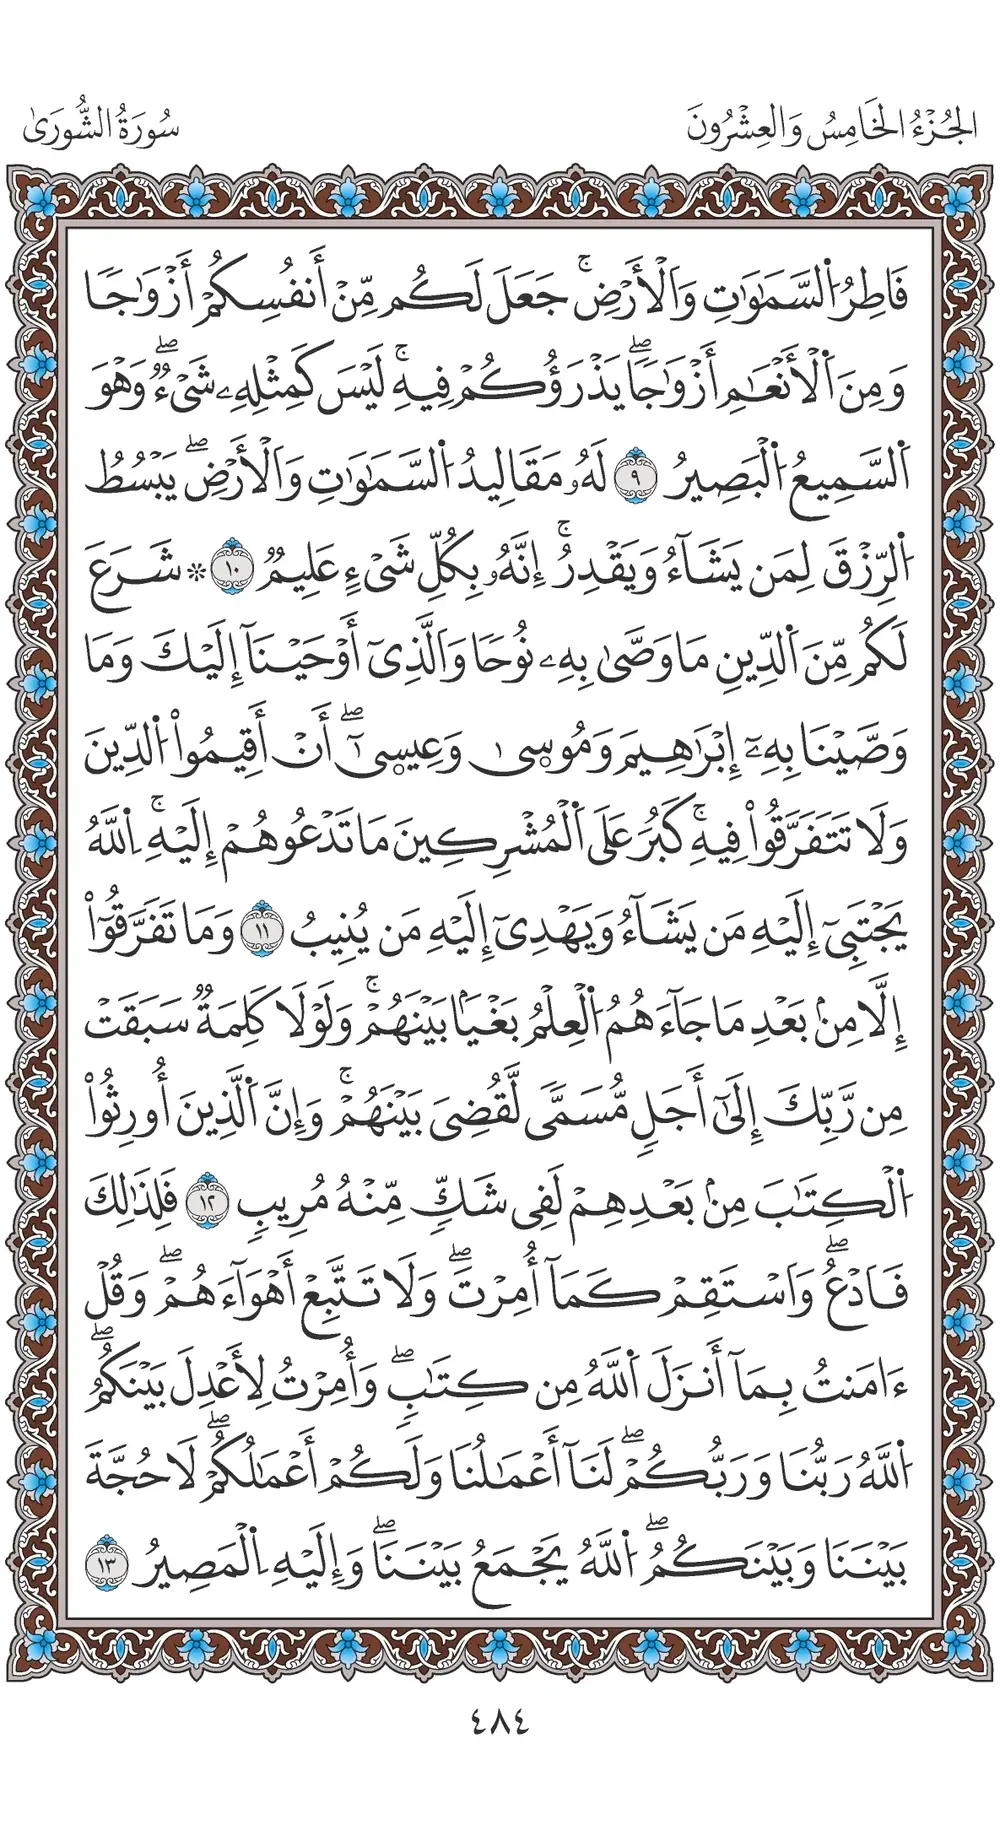 الجُزْءُ الخَامِسُ وَالعِشْرُونَ
سُورَةُ الشُّورَىٰ
فَاطِرُ اُ۬لسَّمَٰوَٰتِ وَالْأَرْضِۚ جَعَلَ لَكُم مِّنْ أَنفُسِكُمْ أَزْوَٰجٗا
وَمِنَ اَ۬لْأَنْعَٰمِ أَزْوَٰجٗاۖ يَذْرَؤُكُمْ فِيهِۚ لَيْسَ كَمِثْلِهِۦ شَيْءٞۖ وَهْوَ
اَ۬لسَّمِيعُ اُ۬لْبَصِيرُ ٩ لَهُۥ مَقَالِيدُ اُ۬لسَّمَٰوَٰتِ وَالْأَرْضِۖ يَبْسُطُ
اُ۬لرِّزْقَ لِمَن يَشَآءُ وَيَقْدِرُۚ إِنَّهُۥ بِكُلِّ شَيْءٍ عَلِيمٞ ١٠ ۞ شَرَعَ
لَكُم مِّنَ اَ۬لدِّينِ مَا وَصَّىٰ بِهِۦ نُوحٗا وَالَّذِيٓ أَوْحَيْنَآ إِلَيْكَ وَمَا
وَصَّيْنَا بِهِۦٓ إِبْرَٰهِيمَ وَمُوسۭىٰ وَعِيسۭىٰٓۖ أَنْ أَقِيمُواْ اُ۬لدِّينَ
وَلَا تَتَفَرَّقُواْ فِيهِۚ كَبُرَ عَلَى اَ۬لْمُشْرِكِينَ مَا تَدْعُوهُمْ إِلَيْهِۚ اِ۬للَّهُ
يَجْتَبِيٓ إِلَيْهِ مَن يَشَآءُ وَيَهْدِيٓ إِلَيْهِ مَن يُنِيبُ ١١ وَمَا تَفَرَّقُوٓاْ
إِلَّا مِنۢ بَعْدِ مَا جَآءَهُمُ اُ۬لْعِلْمُ بَغْيَۢا بَيْنَهُمْۚ وَلَوْلَا كَلِمَةٞ سَبَقَتْ
مِن رَّبِّكَ إِلَىٰٓ أَجَلٖ مُّسَمّٗى لَّقُضِيَ بَيْنَهُمْۚ وَإِنَّ اَ۬لَّذِينَ أُورِثُواْ
اُ۬لْكِتَٰبَ مِنۢ بَعْدِهِمْ لَفِي شَكّٖ مِّنْهُ مُرِيبٖ ١٢ فَلِذَٰلِكَ
فَادْعُۖ وَاسْتَقِمْ كَمَآ أُمِرْتَۖ وَلَا تَتَّبِعْ أَهْوَآءَهُمْۖ وَقُلْ
ءَامَنتُ بِمَآ أَنزَلَ اَ۬للَّهُ مِن كِتَٰبٖۖ وَأُمِرْتُ لِأَعْدِلَ بَيْنَكُمُۖ
اُ۬للَّهُ رَبُّنَا وَرَبُّكُمْۖ لَنَآ أَعْمَٰلُنَا وَلَكُمْ أَعْمَٰلُكُمْۖ لَا حُجَّةَ
بَيْنَنَا وَبَيْنَكُمُۖ اُ۬للَّهُ يَجْمَعُ بَيْنَنَاۖ وَإِلَيْهِ اِ۬لْمَصِيرُ ١٣
٤٨٤